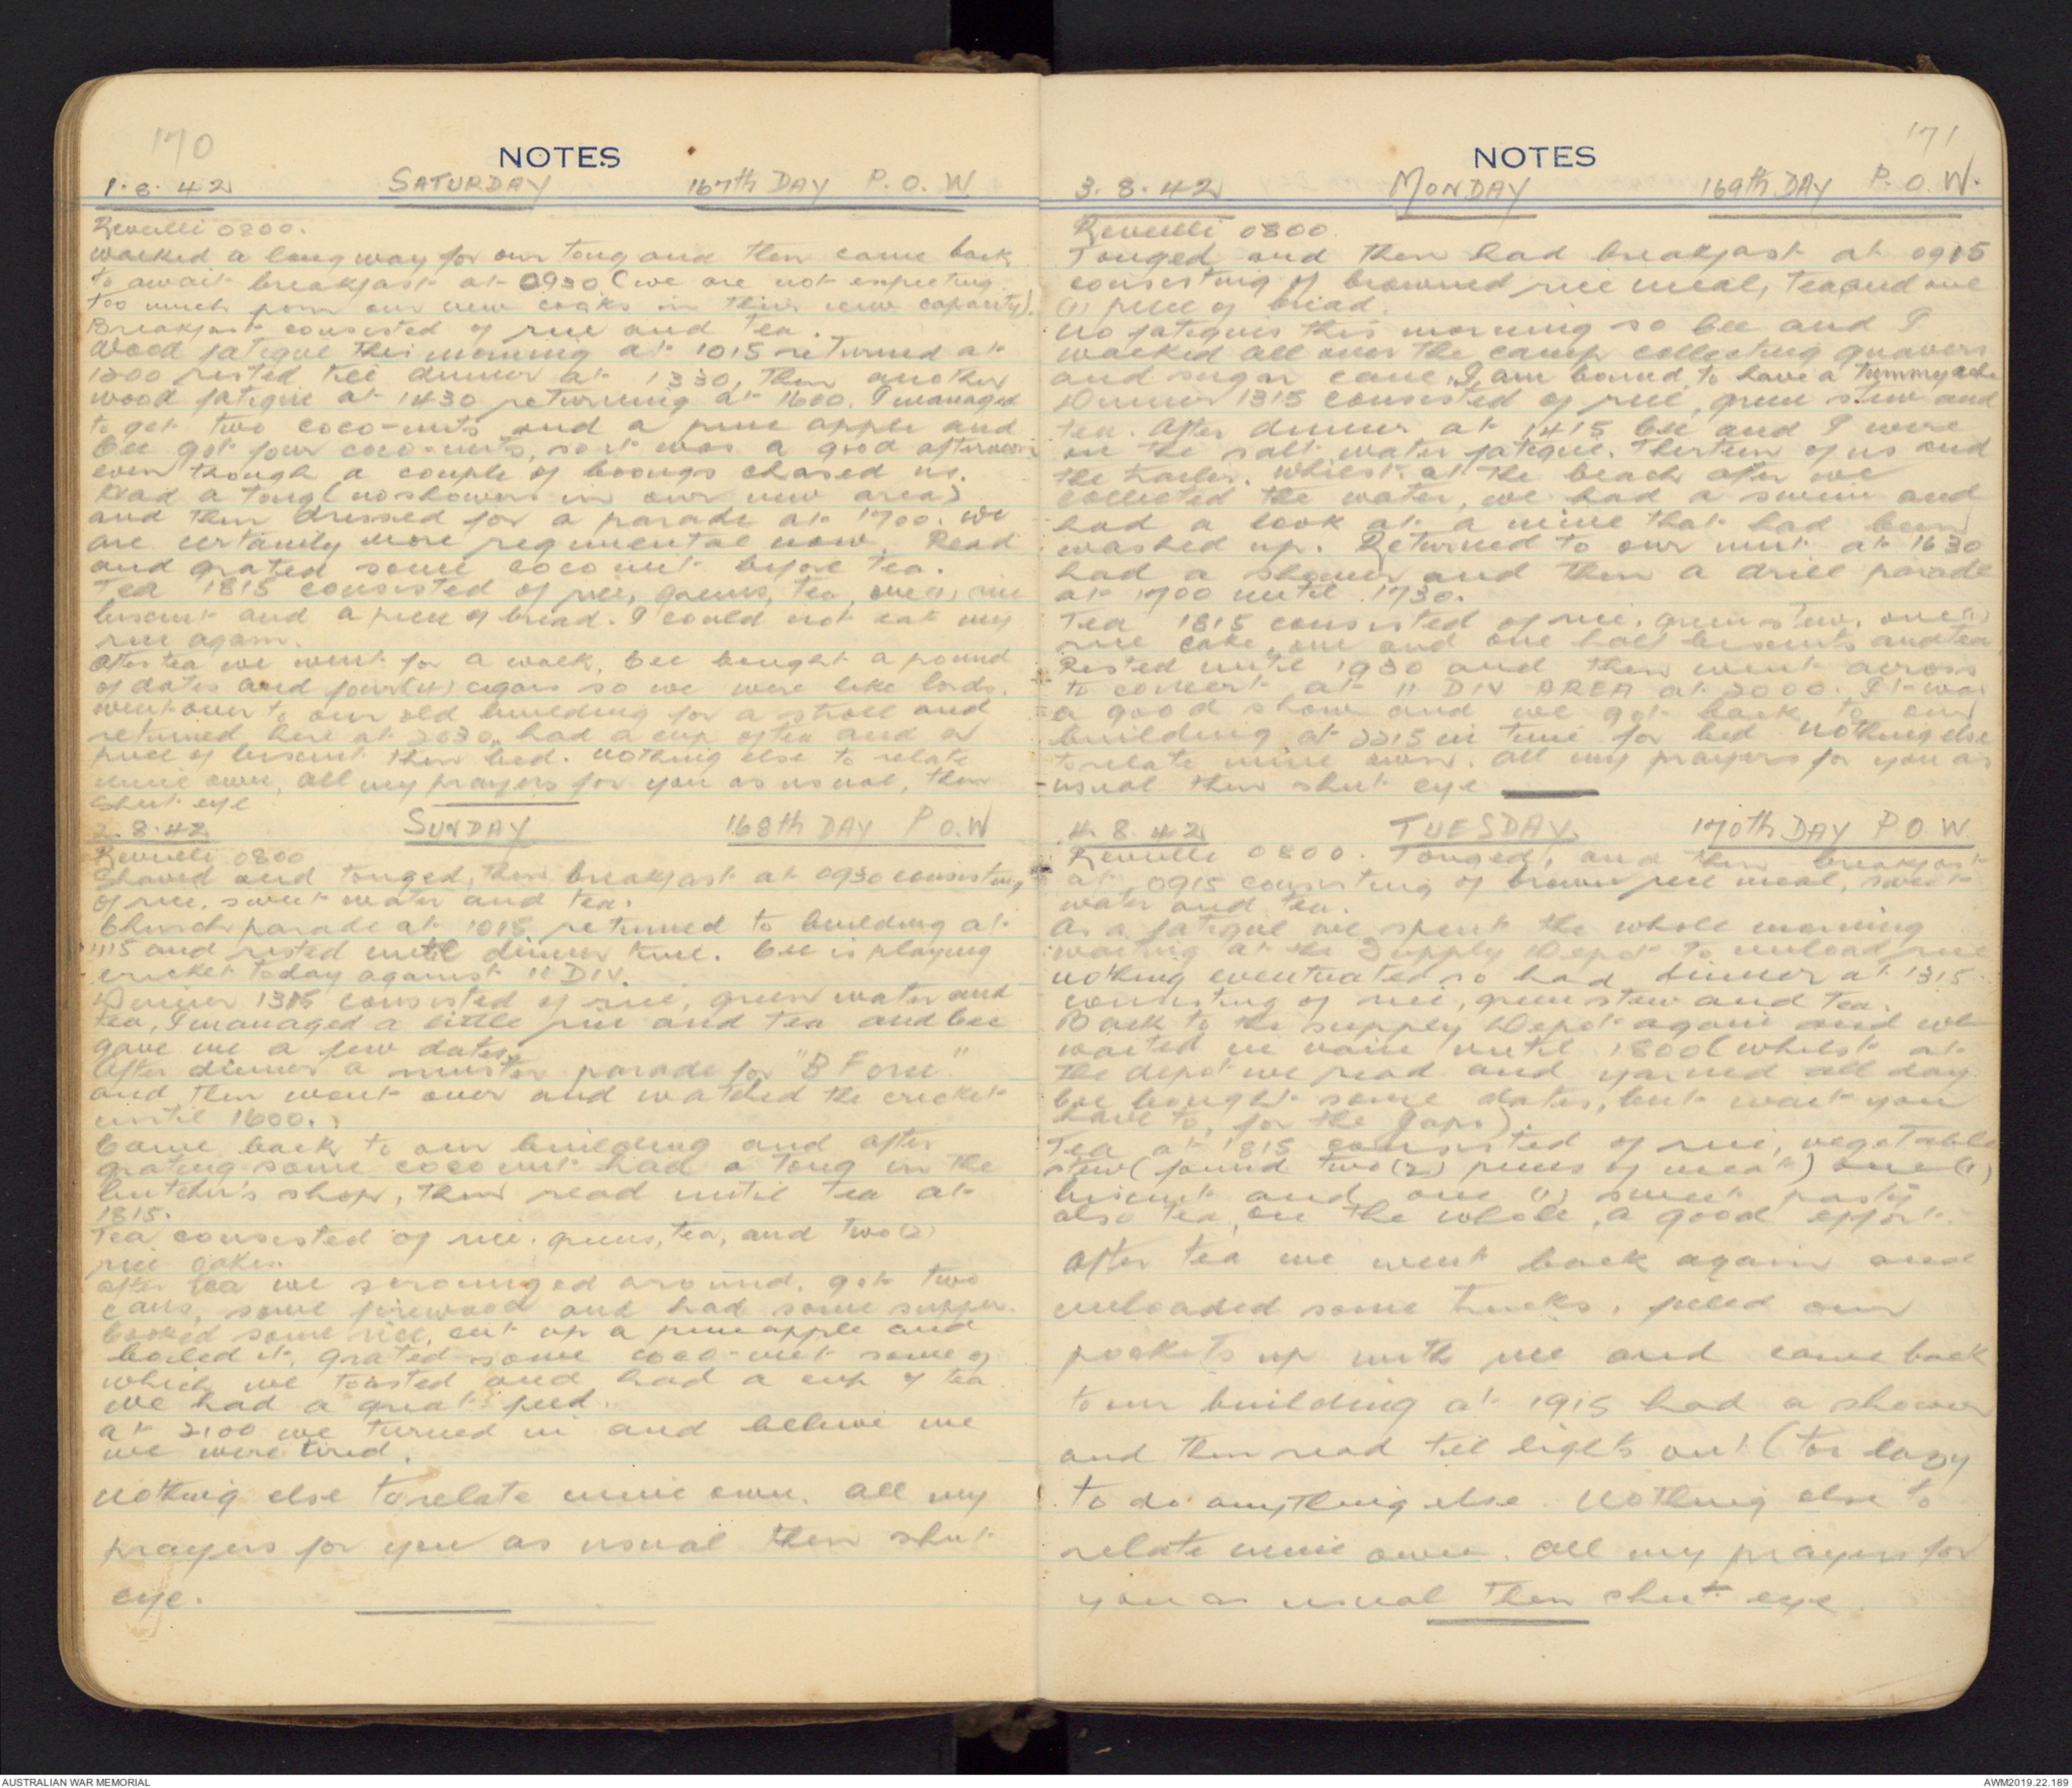 170
NOTES
1.8.42 SATURDAY 167th DAY P.O.W
Reveille 0800.
Walked a long way for our tong and then came back
to await breakfast at 0930 (we are not expecting
too much from our new cooks in their new capacity).
Breakfast consisted of rice and tea.
Wood fatigue this morning at 1015 returned at
1200 rested till dinner at 1330, then another
wood fatigue at 1430 returning at 1600. I managed
to get two coco-nuts and a pine apple and
Cec got four coco-nuts, so it was a good afternoon
even though a couple of boongs chased us.
Had a tong (no showers in our new area)
and then dressed for a parade at 1700. We
are certainly more regimental now. Read
and grated some coconut before tea.
Tea 1815 consisted of rice, greens, tea, one (1) rice
biscuit and a piece of bread. I could not eat my
rice again.
After tea we went for a walk, Cec bought a pound
of dates and four (4) cigars so we were like lords.
Went over to our old building for a stroll and
returned here at 2030, had a cup of tea and a
piece of biscuit then bed. Nothing else to relate
mine own, all my prayers for you as usual, then
shut eye
2.8.42 SUNDAY 168th DAY P.O.W
Reveille 0800
Shaved and tonged, then breakfast at 0930 consisting
of rice, sweet water and tea.
Church parade at 1015 returned to building at
1115 and rested until dinner time. Cec is playing
cricket today against 11 DIV.
Dinner 1315 consisted of rice, green water and
tea, I managed a little rice and tea and Cec
gave me a few dates.
After dinner a muster parade for "B Force"
and then went over and watched the cricket
until 1600.
Came back to our building and after
grating some coconut had a tong in the
butcher's shop, then read until tea at
1815.
Tea consisted of rice, greens, tea, and two (2)
rice cakes.
After tea we scrounged around, got two
cans, some firewood and had some supper.
Cooked some rice, cut up a pineapple and
boiled it, grated some coco-nut some of
which we toasted and had a cup of tea
we had a great feed.
At 2100 we turned in and believe me
we were tired.
Nothing else to relate mine own. All my
prayers for you as usual then shut
eye.
171
NOTES
3.8.42 MONDAY 169th DAY P.O.W.
Reveille 0800
Tonged and then had breakfast at 0915
consisting of browned rice meal, tea and one
(1) piece of bread.
No fatigues this morning so Cec and I
walked all over the camp collecting guavers
and sugar cane, I am bound to have a tummy ache
Dinner 1315 consisted of rice, green stew and
tea. After dinner at 1415 Cec and I were
on the salt water fatigue. Thirteen of us and
the trailer. Whilst at the beach after we
collected the water, we had a swim and
had a look at a mine that had been
washed up. Returned to our unit at 1630
had a shower and then a drill parade
at 1700 until 1730.
Tea 1815 consisted of rice, green stew, one (1)
rice cake, one and one half biscuits and tea
Rested until 1930 and then went across
to concert at 11 DIV AREA at 2000. It was
a good show and we got back to our
building at 2215 in time for bed. Nothing else
to relate mine own. All my prayers for you as
usual then shut eye
4.8.42 TUESDAY 170th DAY P.O.W
Reveille 0800. Tonged, and then breakfast
at 0915 consisting of brown rice meal, sweet
water and tea.
As a fatigue we spent the whole morning
waiting at the Supply Depot to unload rice
nothing eventuated so had dinner at 1315
consisting of rice, green stew and tea.
Back to the supply Depot again and we
waited in vain until 1800 (whilst at
the depot we read and yarned all day
Cec bought some dates, but wait you
have to, for the Japs).
Tea at 1815 consisted of rice, vegetable
stew (found two (2) pieces of meat) one (1)
biscuit and one (1) sweet pasty
also tea, on the whole, a good effort.
After tea we went back again and
unloaded some trucks, filled our
pockets up with rice and came back
to our building at 1915 had a shower
and then read till lights out (too lazy
to do anything else. Nothing else to
relate mine own. All my prayers for
you as usual then shut eye.
AUSTRALIAN WAR MEMORIAL
AWM2019.22.169